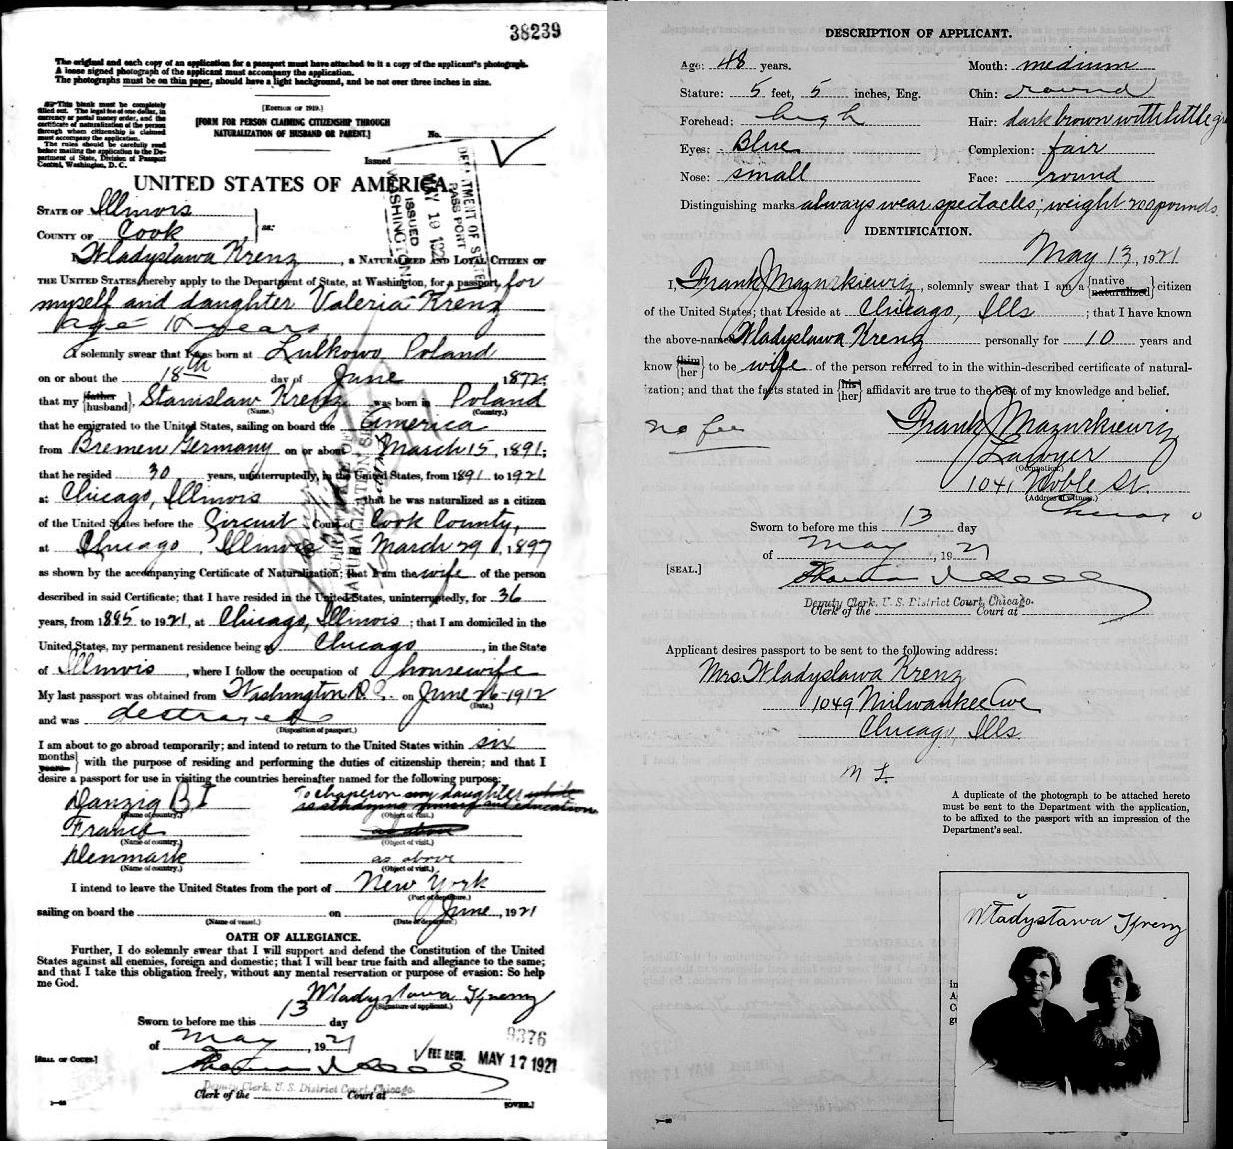 38239
The original and each copy of an application for a passport must have attached to it a copy of the applicant's photograph.
A loose signed photograph of the applicant must accompany the application.
The photographs must be on thin paper, should have a light background, and be not over three inches in size.
This blank must be completely
filled out. The legal fee of one dollar, in
currency or postal money order, and the
certificate of naturalization of the person
through whom citizenship is claimed
must accompany the application.
The rules should be carefully read
before mailing the application to the De-
partment of State, Division of Passport
Control, Washington, D. C.
[EDITION OF 1919.]
[FORM FOR PERSON CLAIMING CITIZENSHIP THROUGH
NATURALIZATION OF HUSBAND OR PARENT.]
No.
Issued
DEPARTMENT OF STATE
PASSPORT
MAY 19 192
ISSUED
WASHINGTON
UNITED STATES OF AMERICA.
STATE OF Illinois
COUNTY OF Cook ss:
I Wladyslawa Krenz, a NATURALIZED AND LOYAL CITIZEN OF
THE UNITED STATES, hereby apply to the Department of State, at Washington, for a passport for
myself and daughter Valeria Krenz
age years
I solemnly swear that I was born at Lulkowo Poland
on or about the 18th day of June, 1872;
that my {father husband}, Stanislaw Krenz, was born in Poland
(Name.) (Country.)
that he emigrated to the United States, sailing on board the America
from Bremen Germany on or about March 15, 1891;
that he resided 30 years, uninterruptedly, in the United States, from 1891 to 1921
at Chicago, Illinois that he was naturalized as a citizen
of the United States before the Circuit Court of Cook County,
at Chicago, Illinois March 29, 1897
as shown by the accompanying Certificate of Naturalization; that I am the wife of the person
described in said Certificate; that I have resided in the United States, uninterruptedly, for 36
years, from 1885 to 1921, at Chicago, Illinois; that I am domiciled in the
United States, my permanent residence being at Chicago, in the State
of Illinois, where I follow the occupation of housewife
My last passport was obtained from Washington D.C. on June 26-1912
(Date.)
and was destroyed
(Disposition of passport.)
I am about to go abroad temporarily; and intend to return to the United States within six
{months years} with the purpose of residing and performing the duties of citizenship therein; and that I
desire a passport for use in visiting the countries hereinafter named for the following purpose:
Danzig B I To chaperon my daughter while
is studying music and education
(Name of country.) (Object of visit.)
France as above
(Name of country.) (Object of visit.)
Denmark as above
(Name of country.) (Object of visit.)
I intend to leave the United States from the port of New York
(Port of departure.)
sailing on board the on June, 1921
(Name of vessel.) (Date of departure.)
OATH OF ALLEGIANCE.
Further, I do solemnly swear that I will support and defend the Constitution of the United
States against all enemies, foreign and domestic; that I will bear true faith and allegiance to the same;
and that I take this obligation freely, without any mental reservation or purpose of evasion: So help
me God.
Wladyslawa Krenz
(Signature of applicant.)
Sworn to before me this 13 day
of May, 1921
9376
FEE RECD. MAY 17 1921
[SEAL OF COURT.]
Deputy Clerk, U. S. District Court, Chicago.
Clerk of the Court at
[OVER.]
DESCRIPTION OF APPLICANT.
Age: 48 years. Mouth: medium
Stature: 5 feet, 5 inches, Eng. Chin: round
Forehead: high Hair: dark brown with little
Eyes: Blue Complexion: fair
Nose: small Face: round
Distinguishing marks always wear spectacles; weight 200 pounds.
IDENTIFICATION.
May 13, 1921
I, Frank J Mazurkiewiz, solemnly swear that I am a {native naturalized} citizen
of the United States; that I reside at Chicago, Ills; that I have known
the above-named Wladyslawa Krenz personally for 10 years and
know {him her} to be wife of the person referred to in the within-described certificate of natural-
ization; and that the facts stated in {his her} affidavit are true to the best of my knowledge and belief.
no fee
Frank J Mazurkiewiz
Lawyer
(Occupation.)
1041 Noble St.
(Address of witness.)
Chicago
Sworn to before me this 13 day
of May, 1921
[SEAL.]
Deputy Clerk, U. S. District Court, Chicago.
Clerk of the Court at
Applicant desires passport to be sent to the following address:
Mrs. Wladyslawa Krenz
1049 Milwaukee Ave
Chicago, Ills
A duplicate of the photograph to be attached hereto
must be sent to the Department with the application,
to be affixed to the passport with an impression of the
Department's seal.
Władysława Krenz